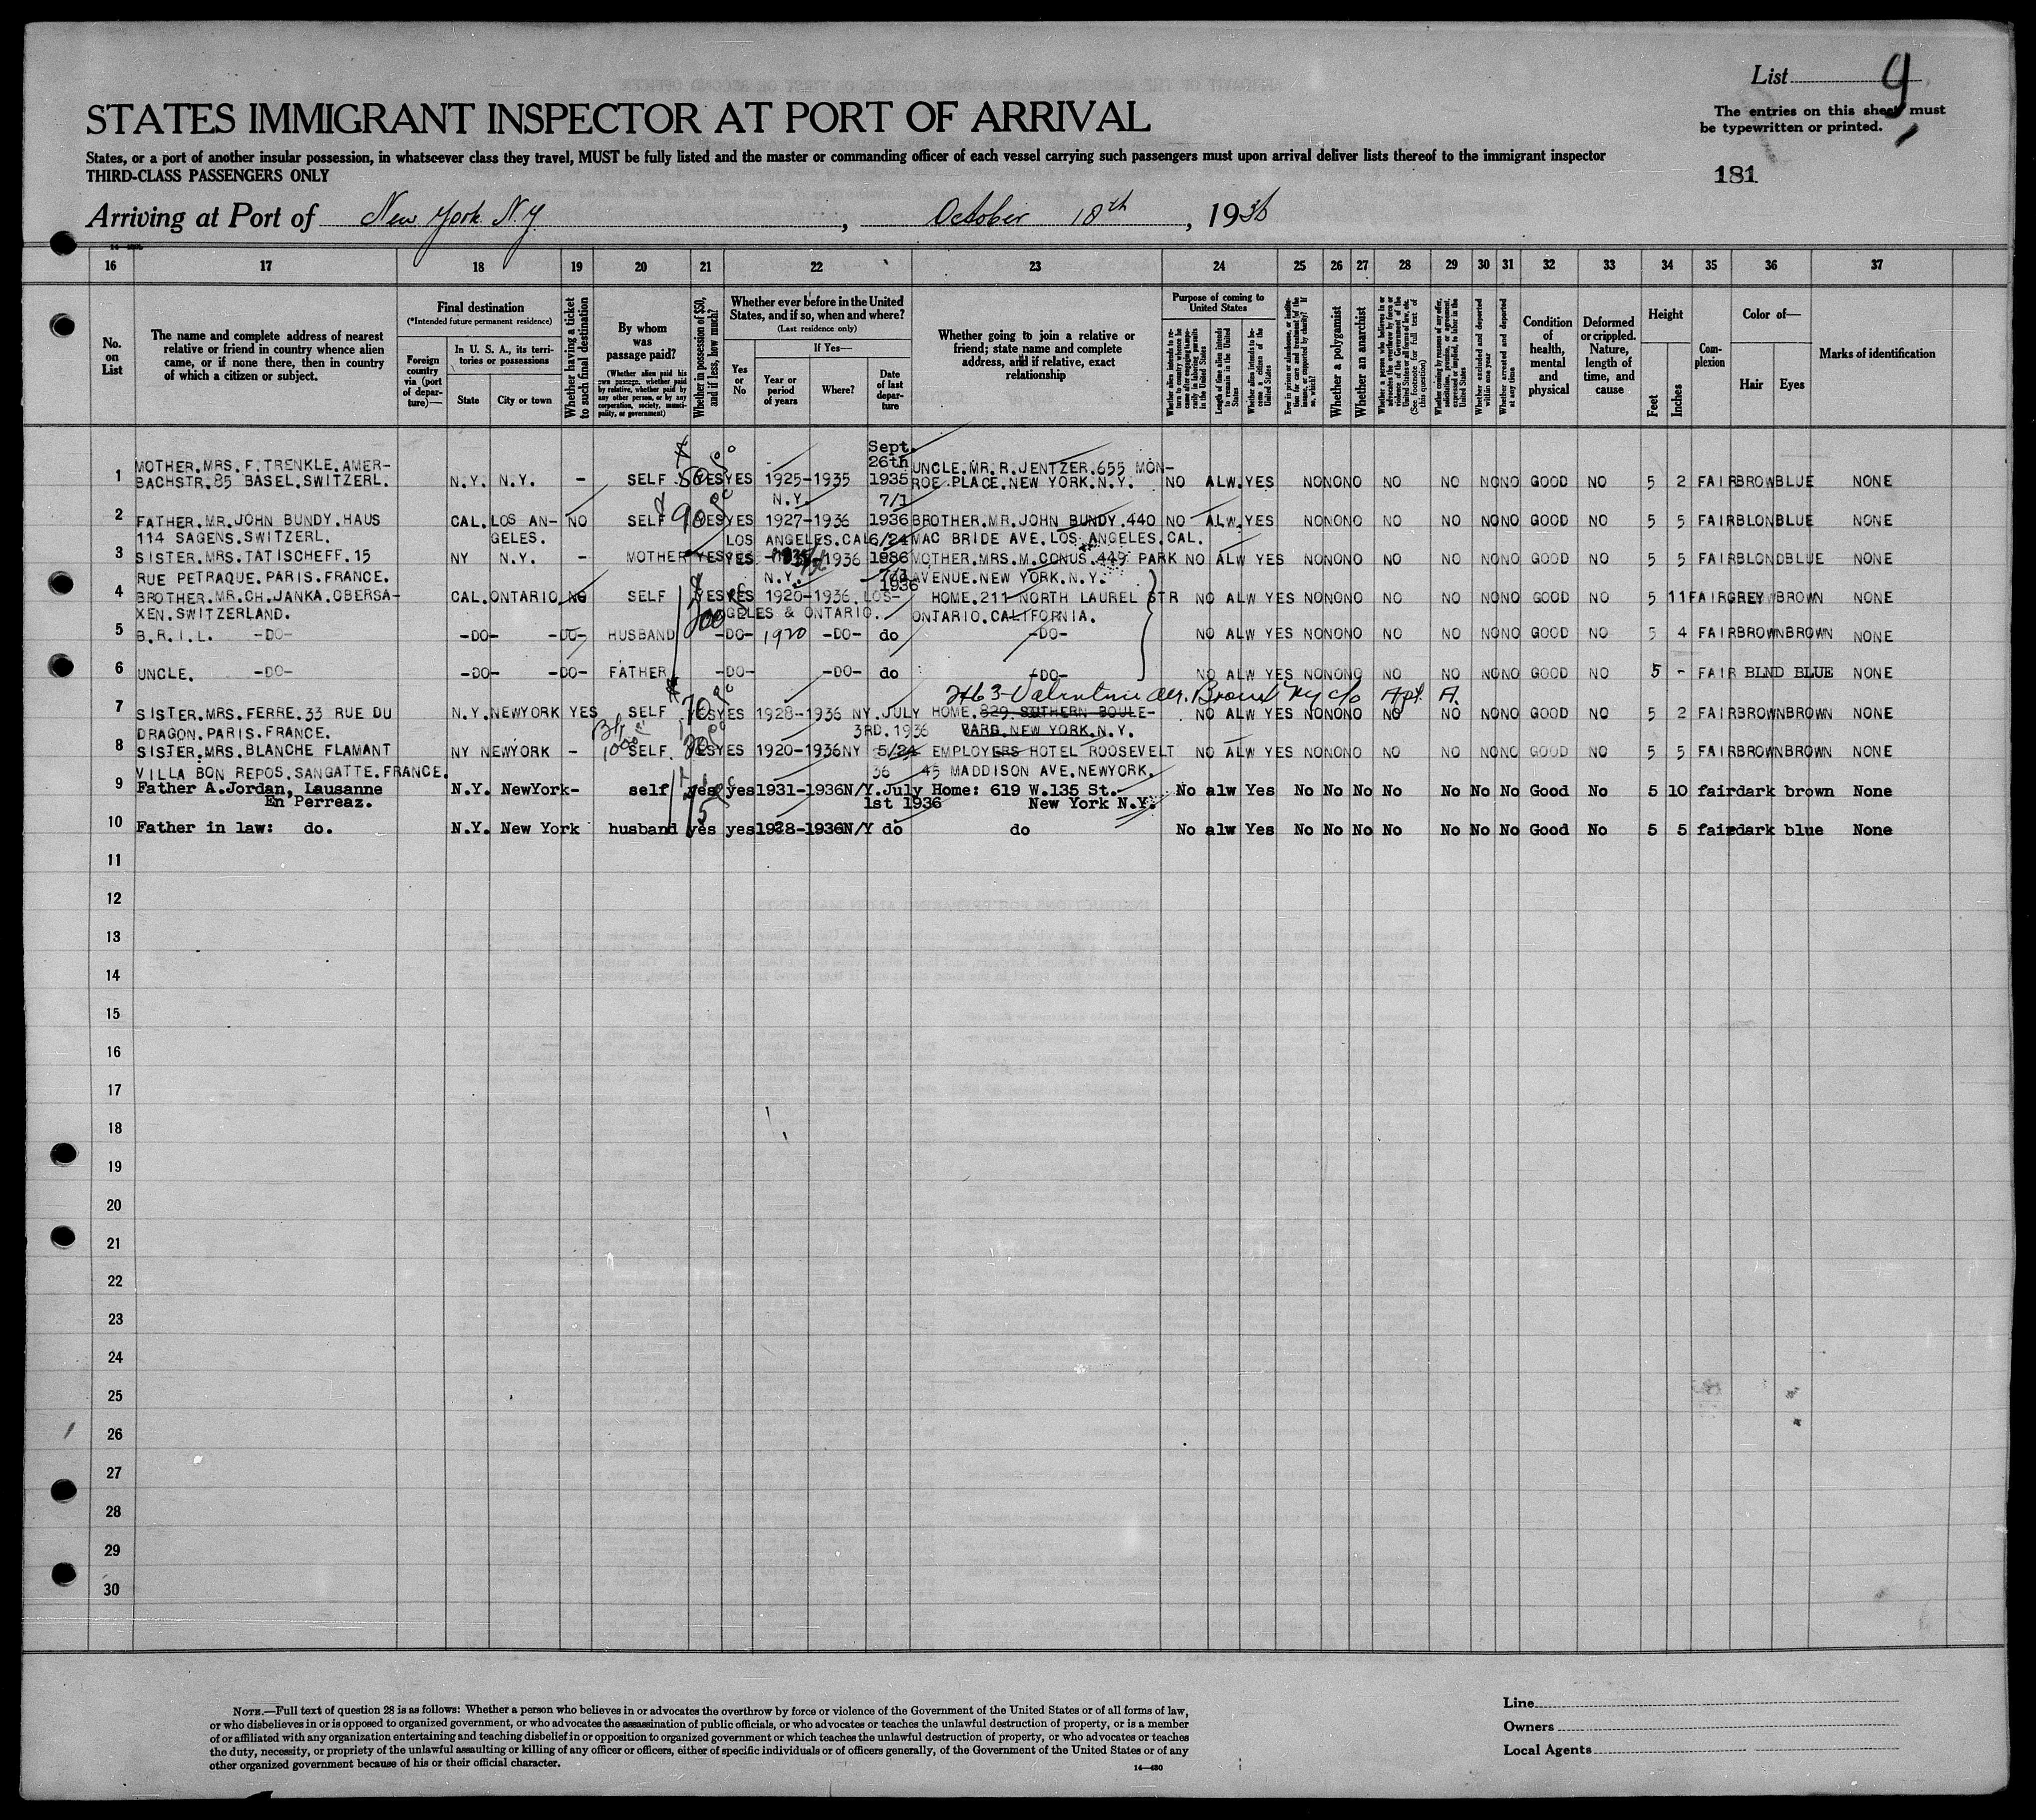 List 9
The entries on this sheet must
be typewritten or printed.
181
STATES IMMIGRANT INSPECTOR AT PORT OF ARRIVAL
States, or a port of another insular possession, in whatsoever class they travel, MUST be fully listed and the master or commanding officer of each vessel carrying such passengers must upon arrival deliver lists thereof to the immigrant inspector
THIRD-CLASS PASSENGERS ONLY
Arriving at Port of New York N.Y , October 18th , 1936
16 17 18 19 20 21 22 23 24 25 26 27 28 29 30 31 32 33 34 35 36 37
No. on List
The name and complete address of nearest relative or friend in country whence alien came, or if none there, then in country of which a citizen or subject.
Final destination
(*Intended future permanent residence)
Foreign country via (port of departure)—
In U. S. A., its territories or possessions
State
City or town
Whether having a ticket to such final destination
By whom was passage paid?
(Whether alien paid his own passage, whether paid by relative, whether paid by any other person, or by any corporation, society, municipality, or government)
Whether in possession of $50, and if less, how much?
Whether ever before in the United States, and if so, when and where?
(Last residence only)
Yes or No
If Yes—
Year or period of years
Where?
Date of last departure
Whether going to join a relative or friend; state name and complete address, and if relative, exact relationship
Purpose of coming to United States
Length of time alien intends to remain in the United States
Whether alien intends to become a citizen of the United States
Whether a polygamist
Whether an anarchist
Whether excluded and deported within one year
Whether arrested and deported at any time
Condition of health, mental and physical
Deformed or crippled. Nature, length of time, and cause
Height
Feet
Inches
Complexion
Color of—
Hair
Eyes
Marks of identification
1 MOTHER.MRS.F.TRENKLE.AMER-
BACHSTR.85 BASEL.SWITZERL. N.Y. N.Y. - SELF YES YES 1925-1935 N.Y. Sept. 26th 1935 UNCLE.MR.R.JENTZER.655 MON-
ROE PLACE.NEW YORK.N.Y. NO ALW.YES NO NO NO NO NO NO NO GOOD NO 5 2 FAIR BROW BLUE NONE
2 FATHER.MR.JOHN BUNDY.HAUS
114 SAGENS.SWITZERL. CAL. LOS AN-
GELES. NO SELF 90 YES YES 1927-1936 7/1 1936 BROTHER.MR.JOHN BUNDY.440 NO ALW.YES NO NO NO NO NO NO NO GOOD NO 5 5 FAIR BLON BLUE NONE
LOS ANGELES.CAL. MAC BRIDE AVE.LOS ANGELES.CAL.
3 SISTER.MRS.TATISCHEFF.15
RUE PETRAQUE.PARIS.FRANCE. NY N.Y. - MOTHER YES YES 1936 N.Y. 6/24 1936 MOTHER.MRS.M.CONUS.449 PARK
AVENUE.NEW YORK.N.Y. NO ALW YES NO NO NO NO NO NO NO GOOD NO 5 5 FAIR BLOND BLUE NONE
4 BROTHER.MR.CH.JANKA.OBERSA-
XEN.SWITZERLAND. CAL. ONTARIO NO SELF YES YES 1920-1936 LOS-
GELES & ONTARIO. 1936 HOME.211 NORTH LAUREL STR
ONTARIO.CALIFORNIA. NO ALW YES NO NO NO NO NO NO NO GOOD NO 5 11 FAIR GREY BROWN NONE
5 B.R.I.L. -DO- -DO- -DO- HUSBAND -DO- 1920 -DO- do -DO- NO ALW YES NO NO NO NO NO NO NO GOOD NO 5 4 FAIR BROWN BROWN NONE
6 UNCLE. -DO- -DO- -DO- FATHER -DO- -DO- do -DO- NO ALW YES NO NO NO NO NO NO NO GOOD NO 5 - FAIR BLND BLUE NONE
2463-Valentine Ave. Bronx Ny c/o Apt. A.
7 SISTER.MRS.FERRE.33 RUE DU
DRAGON.PARIS.FRANCE. N.Y. NEWYORK YES SELF 70 YES YES 1928-1936 NY. JULY
3RD.1936 HOME.829 SUTHERN BOULE-
VARD.NEW YORK.N.Y. NO ALW YES NO NO NO NO NO NO NO GOOD NO 5 2 FAIR BROWN BROWN NONE
8 SISTER.MRS.BLANCHE FLAMANT
VILLA BON REPOS.SANGATTE.FRANCE. NY NEWYORK - 1000 SELF. YES YES 1920-1936 NY 5/24
36 EMPLOYERS HOTEL ROOSEVELT
45 MADDISON AVE.NEWYORK. NO ALW YES NO NO NO NO NO NO NO GOOD NO 5 5 FAIR BROWN BROWN NONE
9 Father A.Jordan, Lausanne
En Perreaz. N.Y. NewYork- self 75 yes yes 1931-1936 N/Y. July
1st 1936 Home: 619 W.135 St.
New York N.Y. No alw Yes No No No No No No No Good No 5 10 fair dark brown None
10 Father in law: do. N.Y. New York husband yes yes 1928-1936 N/Y do do No alw Yes No No No No No No No Good No 5 5 fair dark blue None
11
12
13
14
15
16
17
18
19
20
21
22
23
24
25
26
27
28
29
30
NOTE.—Full text of question 28 is as follows: Whether a person who believes in or advocates the overthrow by force or violence of the Government of the United States or of all forms of law,
or who disbelieves in or is opposed to organized government, or who advocates the assassination of public officials, or who advocates or teaches the unlawful destruction of property, or is a member
of or affiliated with any organization entertaining and teaching disbelief in or opposition to organized government or which teaches the unlawful destruction of property, or who advocates or teaches
the duty, necessity, or propriety of the unlawful assaulting or killing of any officer or officers, either of specific individuals or of officers generally, of the Government of the United States or of any
other organized government because of his or their official character.
14—480
Line
Owners
Local Agents